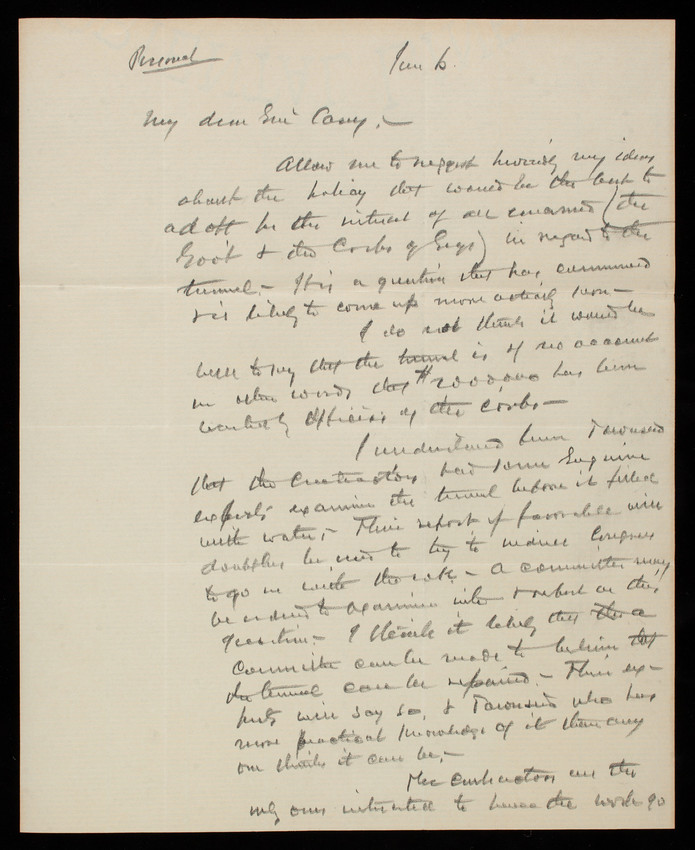 Personal
June 6.
My dear Gen'l Casey,—
Allow me to suggest hurriedly my ideas
about the policy that would be the best to
adopt for the interest of all concerned (the
Gov't & the Corps of Engs) in regard to the
tunnel.— It is a question that has
& is likely to come up more actively soon—
I do not think it would be
well to say that the tunnel is of no account
in other words that $2000,000 has been
wasted by Officers of the Corps—
I understand from Townsend
that the Contractors had some Engineer
experts examine the tunnel before it filled
with water;— Their report if favorable will
doubtless be used to try to induce Congress
to go on with the work.— A committee may
be ordered to examine into & report on this
question.— I think it likely that a
Committee can be made to believe that
the tunnel can be repaired.— Their ex-
perts will say so, & Townsend who has
more practical knowledge of it than any
one thinks it can be,—
The Contractors are the
only ones interested to have the work go